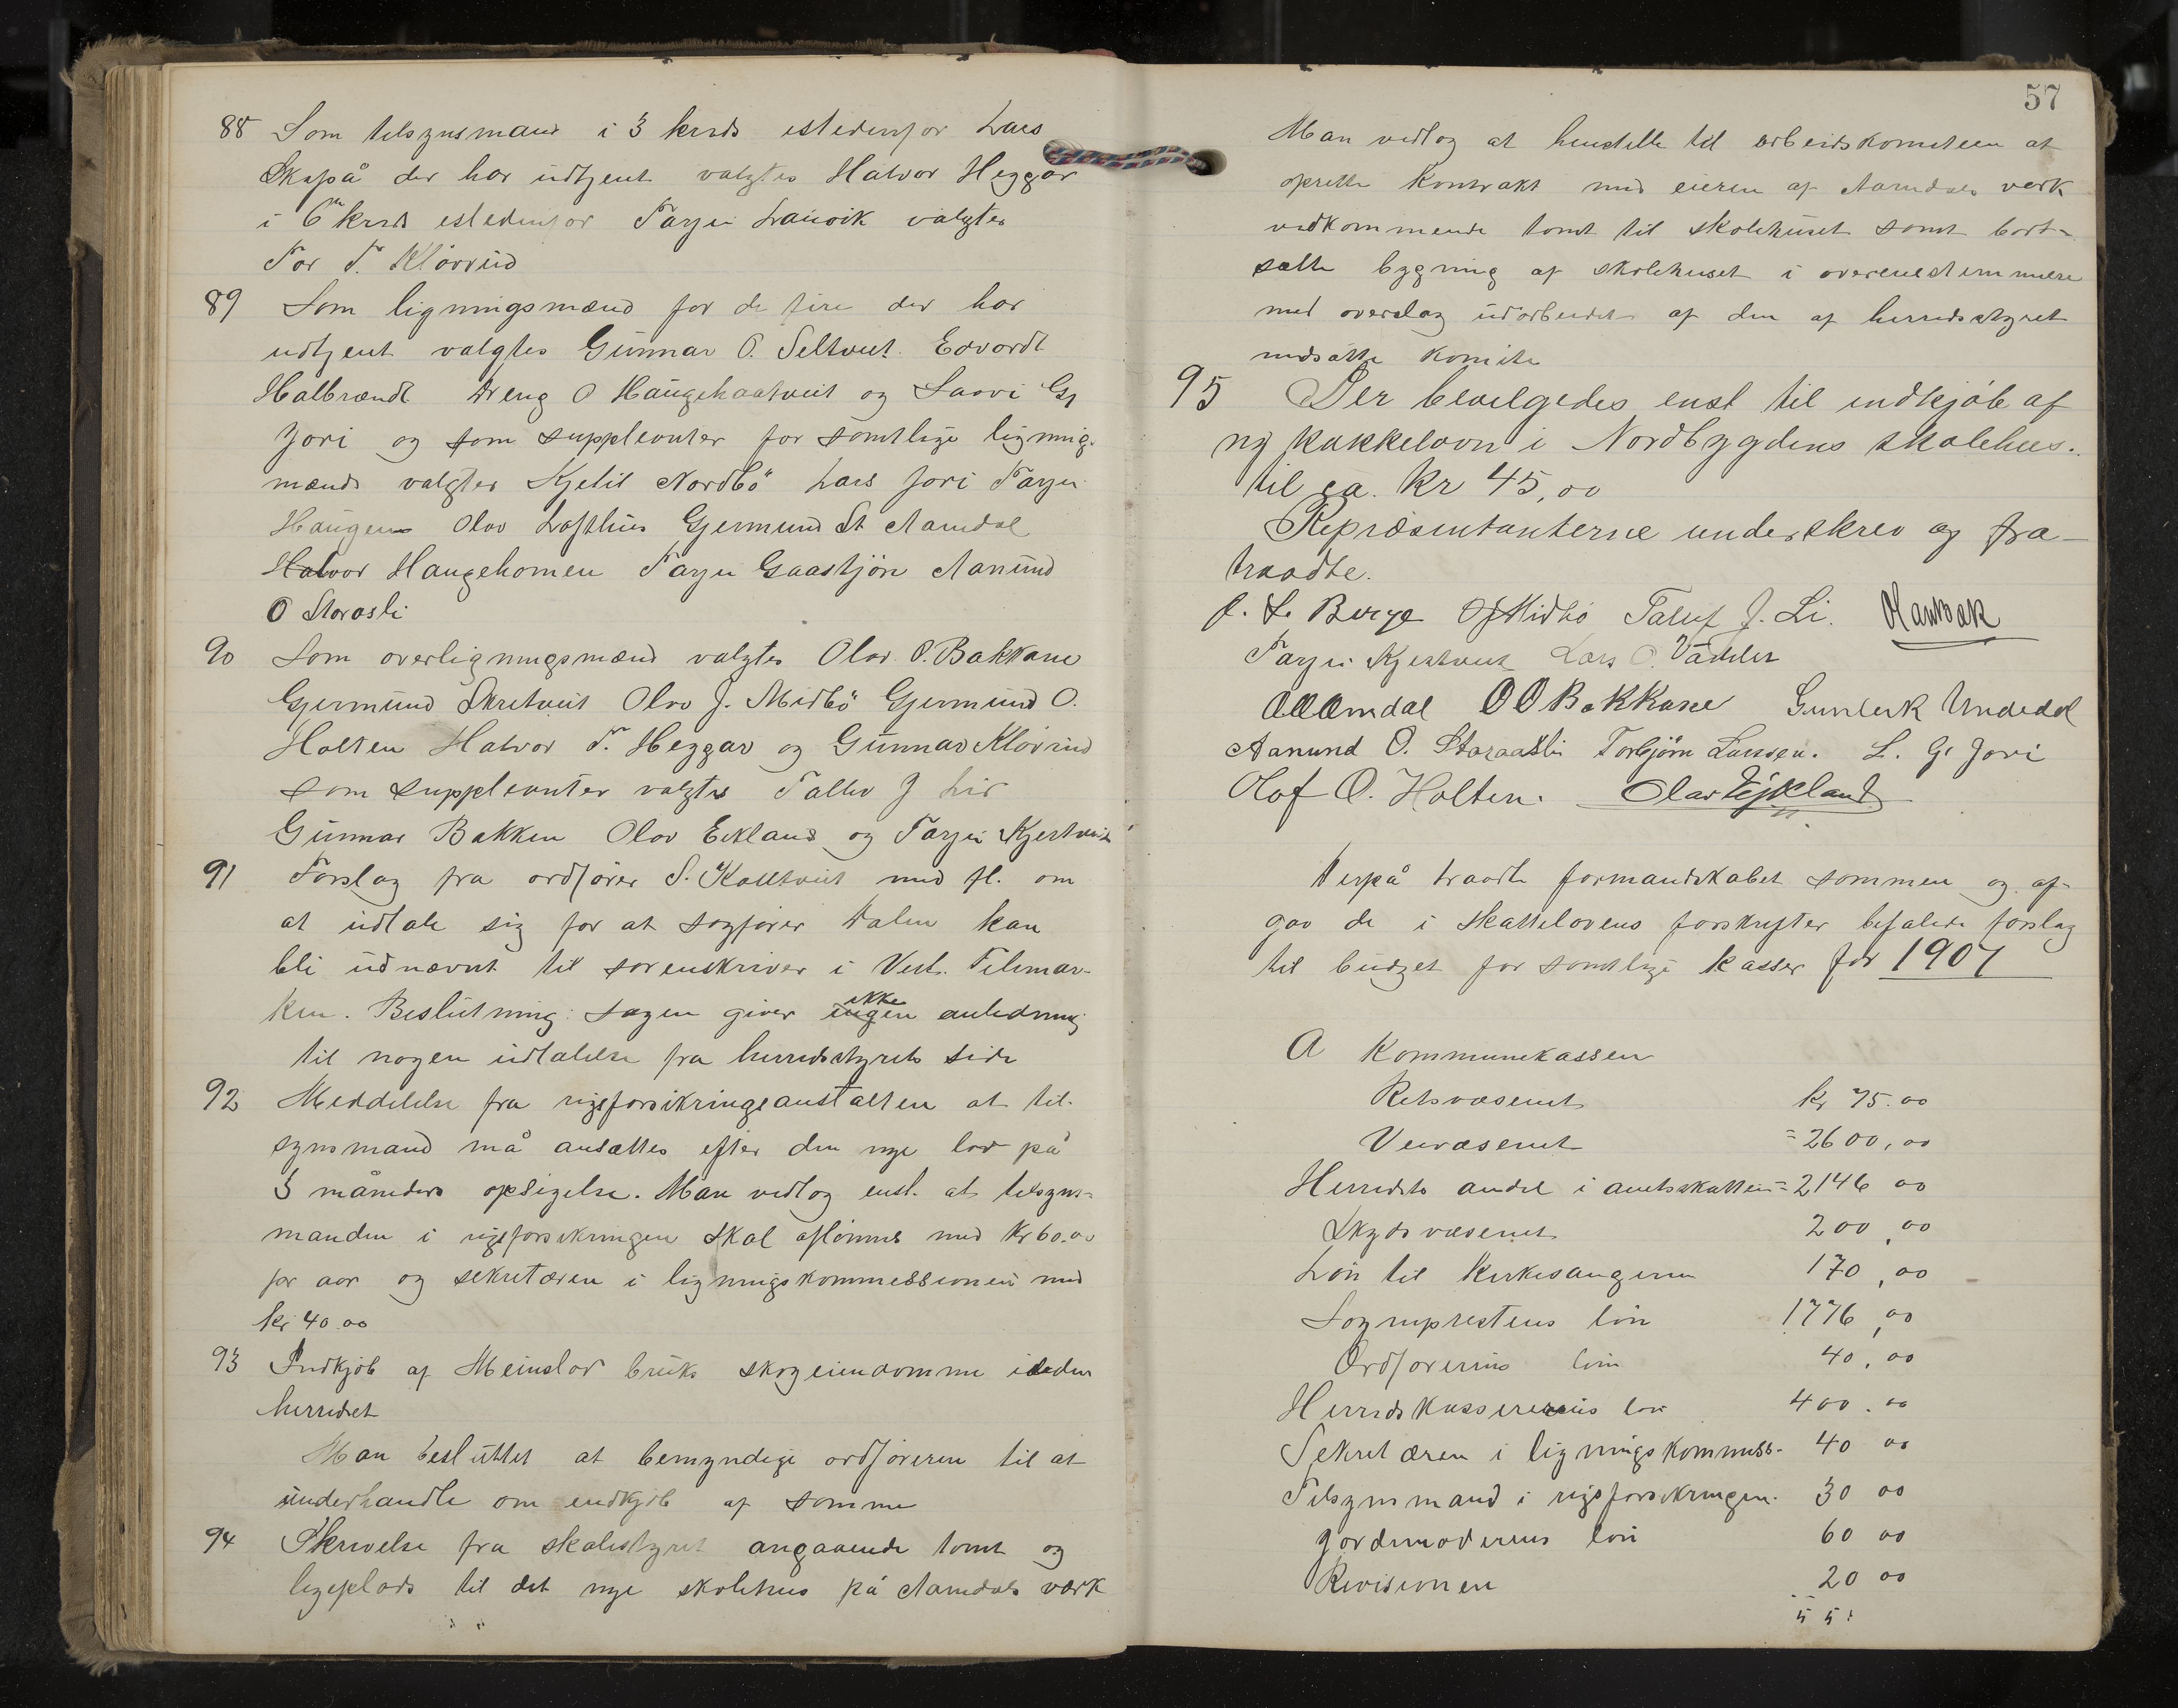 88 Som tilsynsmand i 3 krds istedenfor Lars
Skapå der har udtjent valgtes Halvor Heggar
i 6te krds istedenfor Tarjei Lauvik valgtes
Tor T. Klovrud
89 Som ligningsmænd for de fire der har
udtjent valgtes Gunnar O. Seltveit. Edvardt
Halbrændt Dreng O Haugekaatveit og Saavi Gj
Jori og som suppleanter for samtlige lignings
mænd valgtes Kjetil Nordbö Lars Jori Tarjei
Haugen Olav Lofthus Gjermund St Aamdal
Halvor Haugehomen Tarjei Gaastjön Aanund
O Storosli
90 Som overligningsmænd valgtes Olav O. Bakkane
Gjermund Skretveit Olav J. Midbö Gjermund O.
Holten Halvor T. Heggar og Gunnar Klovrud
som suppleanter valgtes Tallev J Lid
Gunnar Bakken Olav Eikland og Tarjei Kjestveit
91 Forslag fra ordfører S. Kolltveit med fl. om
at udtale sig for at sagfører Dalen kan
bli udnævnt til sorenskriver i Vest. Telemar-
ken. Beslutning: Sagen giver ingen ikke anledning
til nogen udtalelse fra herredstyrets side
92 Meddelelse fra rigsforsikringsanstalten at til-
synsmand må ansættes efter den nye lov på
3 måneders opsigelse. Man vedtog enst. at tilsyns-
manden i rigsforsikringen skal aflönnes med Kr 60.00
pr aar og sekretæren i ligningskommissionen med
kr 40.00
93 Indkjöb af Meinstad bruks skogeiendomme i
herredet
Man besluttet at bemyndige ordföreren til at
underhandle om indkjöb af samme
94 Skrivelse fra skolestyret angaaende tomt og
legeplads til det nye skolehus på Aamdals værk
57
Man vedtog at henstille til arbeidskomiteen at
oprette Kontrakt med eieren af Aamdals verk
vedkommende tomt til skolehuset samt bort-
sætte bygning af skolehuset i overensstemmelse
med overslag udarbeidet af den af herredsstyret
nedsatte komite
95 Der bevilgedes enst til indkjöb af
ny kakkelovn i Nordbygdens skolehus.
til ca. kr 45,00
Repræsentanterne underskrev og fra-
traadte.
J. S. Berge O J Midbö Taluf J. Li.
Tarjei Kjestveit Lars O. Vadder
O O Omdal O O Bakkane Gunleik Undedal
Aanund O. Storaasli Torbjörn Larsen. S. G. Jori
Olof O. Holten. Olav Eikland
Derpå traadte formandskabet sammen og af-
gav de i Skattelovens forskrifter befalede forslag
til budget for samtlige kasser for 1907
A Kommunekassen
Retsvæsenet kr 75.00
Veivæsenet = 2600,00
Herredets andel i amtsskatten = 2146 00
Skydsvæsenet 200,00
Lön til Kirkesangeren 170,00
Sogneprestens lön 1776,00
Ordförerens lön 40,00
Herredskassererens lön 400.00
Sekretæren i ligningskommiss. 40 00
Tilsynsmand i rigsforsikringen. 30 00
Jordemoderens lön 60 00
Revisionen 20 00